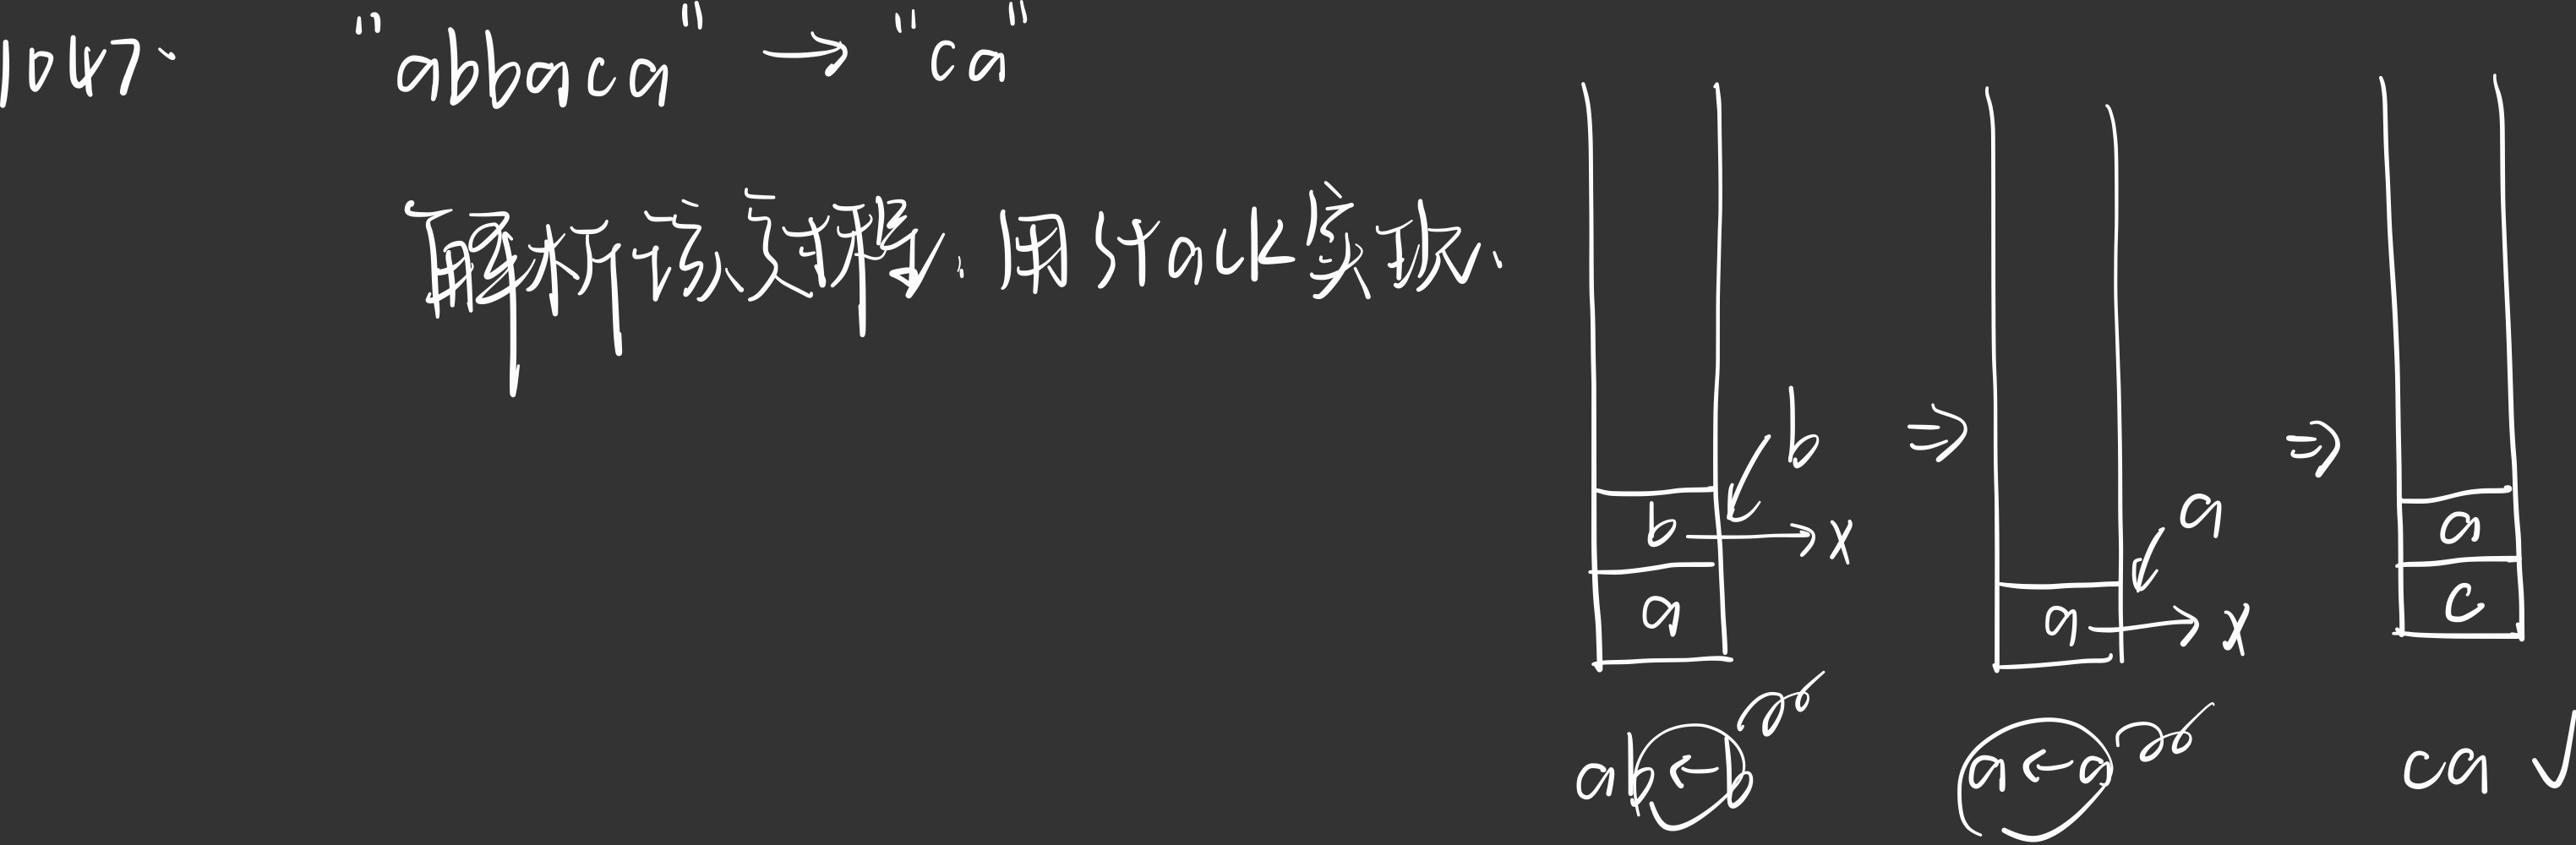 1047.
"abbaca" → "ca"
解析该文解释, 用Stack实现.
b
b → x
a
ab ← b
⇒
a
a → x
a ← a
⇒
a
c
ca √